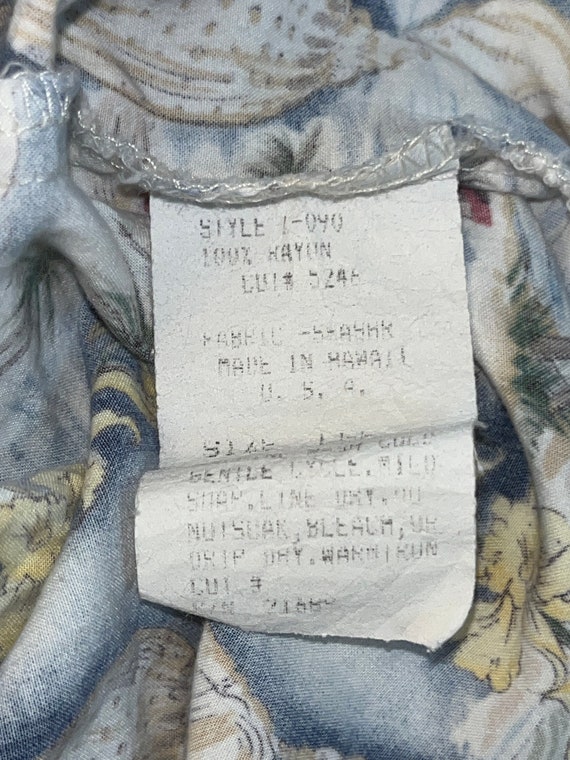 STYLE 7-090
100% RAYON
CUT# 5246
FABRIC -
MADE IN HAWAII
U. S. A.
SIZE COLD
GENTLE CYCLE. MILD
SOAP. LINE DRY. DO
NOT SOAK, BLEACH, OR
DRIP DRY. WARM IRON
CUT #